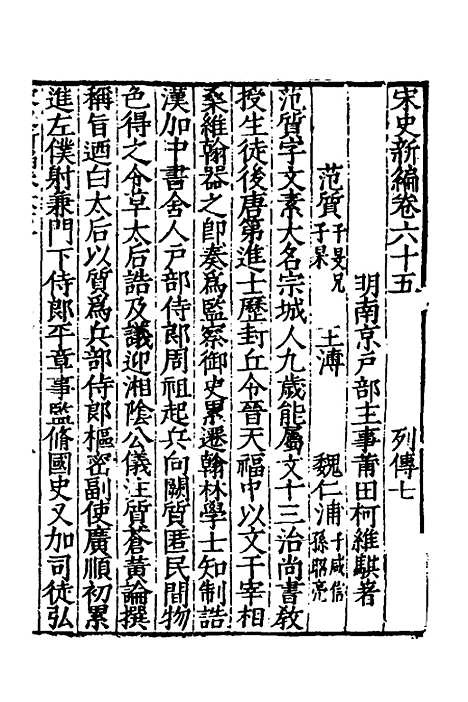 宋史新編卷六十五 列傳七
明南京戶部主事莆田柯維騏著
范質 子旻 兄子杲 王溥 魏仁浦 子咸信 孫昭亮
范質字文素大名宗城人九歲能屬文十三治尚書教
授生徒後唐第進士歷封丘令晉天福中以文干宰相
桑維翰器之卽奏爲監察御史累遷翰林學士知制誥
漢加中書舍人戶部侍郎周祖起兵向闕質匿民間物
色得之令草太后誥及議迎湘陰公儀注質蒼黃論撰
稱旨迺白太后以質爲兵部侍郎樞密副使廣順初累
進左僕射兼門下侍郎平章事監脩國史又加司徒弘